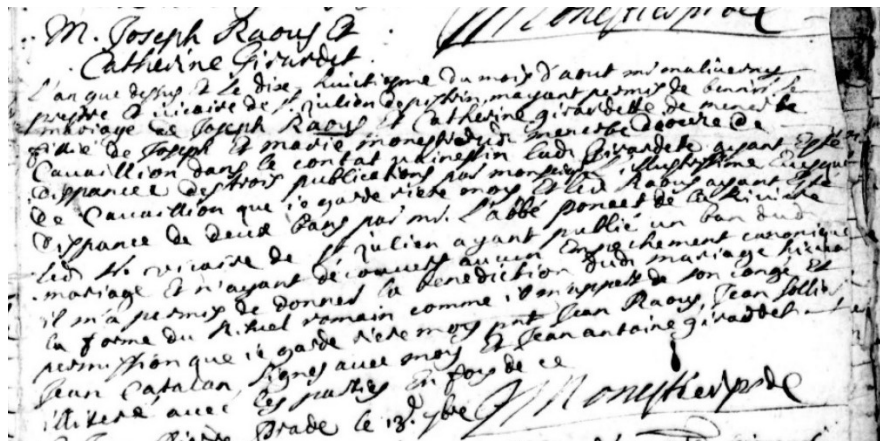 M. Joseph Raoux Et
Catherine Girardet
L'an que dessus Et Le dixe huictiesme du mois d'aout mr malivernis
prestre Et vicaire de St Julien de pistrin, mayant permis de benir le
mariage de Joseph Raoux Et Catherine girardette de menerbe
fille de Joseph Et marie monestier dud menerbe diocese de
Cavaillion dans le contat venessin lad girardete ayant Esté
dispancée des trois publications par monseigr l'illustrissime Evesque
de Cavaillion que ie garde riere moy Et led Raoux ayant Esté
dispance de deux bans par mr L'abbé poncet de la Riviere
led Sr vicaire de St Julien ayant publié un ban dud
mariage Et n'ayant découvert aucun Empechement canonique
il m'a permis de donner la benediction dud mariage
la forme du Rituel romain comme il m'apport de son congé Et
permission que ie garde riere moy pnt Jean Raoux, Jean Sollier
Jean Catalan signes avec moy Et Jean antoine girardet
illiteré avec les parties En foy de ce
Monestier p.re
Pierre Prade le 13e 9bre